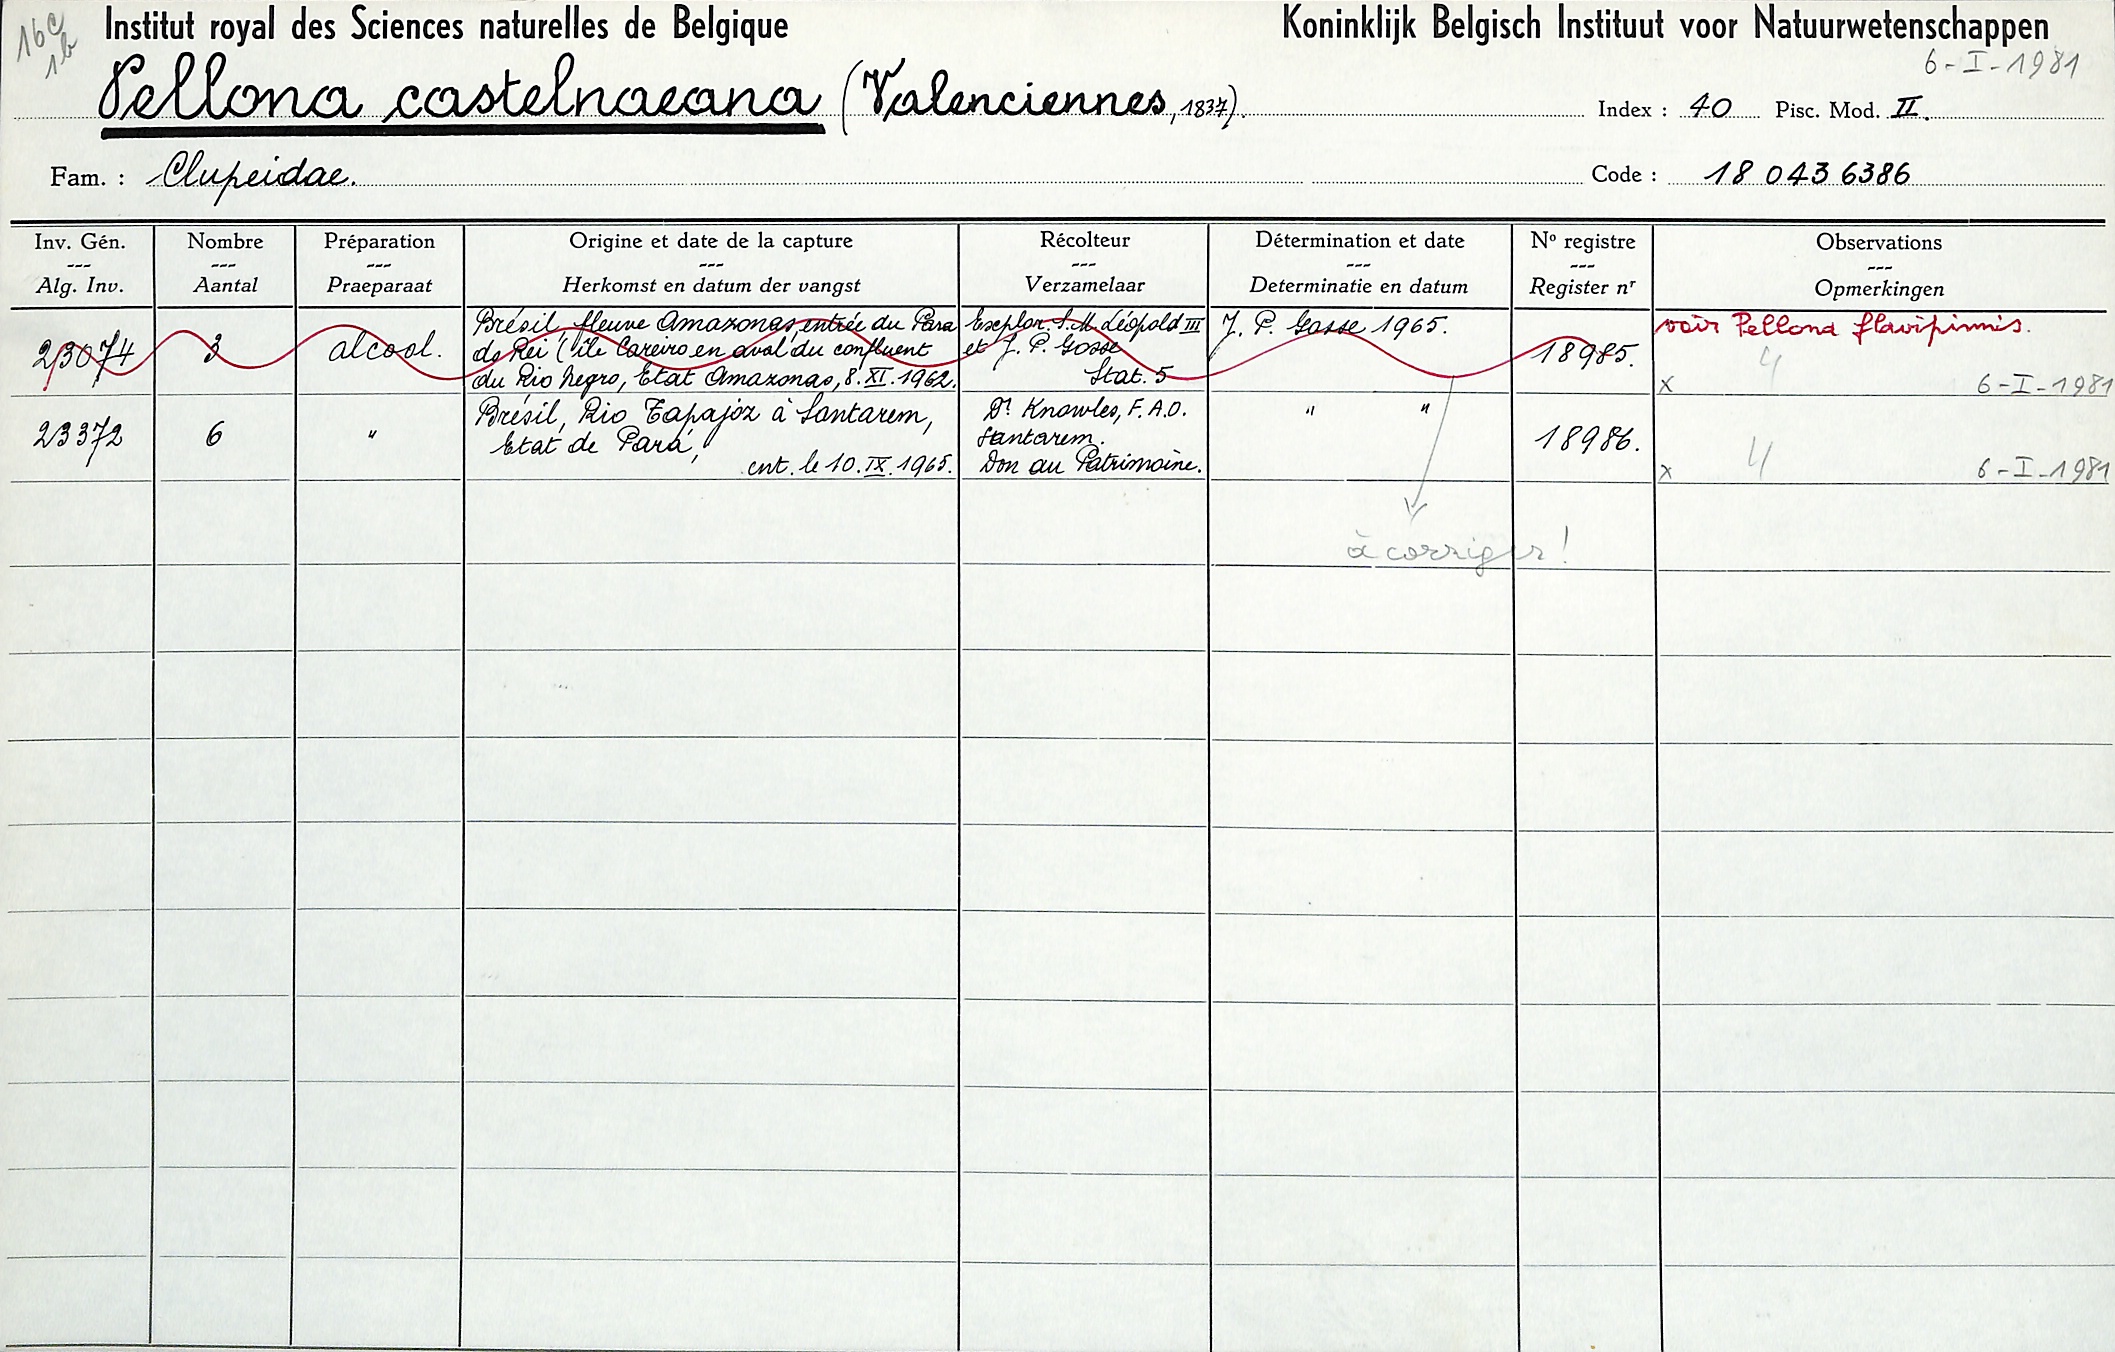 16C
1b
Institut royal des Sciences naturelles de Belgique
Koninklijk Belgisch Instituut voor Natuurwetenschappen
6-I-1981
Pellona castelnaeana (Valenciennes, 1837).
Index : 40 Pisc. Mod. II.
Fam. : Clupeidae.
Code : 18 043 6386
Inv. Gén.
---
Alg. Inv.
Nombre
---
Aantal
Préparation
---
Praeparaat
Origine et date de la capture
---
Herkomst en datum der vangst
Récolteur
---
Verzamelaar
Détermination et date
---
Determinatie en datum
Nº registre
---
Register nʳ
Observations
---
Opmerkingen
23074
3
alcool.
Brésil, fleuve Amazonas, entrée du Parana
do Rei (île Careiro en aval du confluent
du Rio Negro, Etat Amazonas, 8.XI.1962.
Explor. S.M. Léopold III
et J. P. Gosse
Stat. 5
J. P. Gosse 1965.
18985.
voir Pellona flavipinnis.
4
x 6-I-1981
23372
6
"
Brésil, Rio Tapajoz à Santarem,
Etat de Para,
ent. le 10.IX.1965.
Dr Knowles, F.A.O.
Santarem.
Don au Patrimoine.
" "
18986.
4
x 6-I-1981
à corriger !